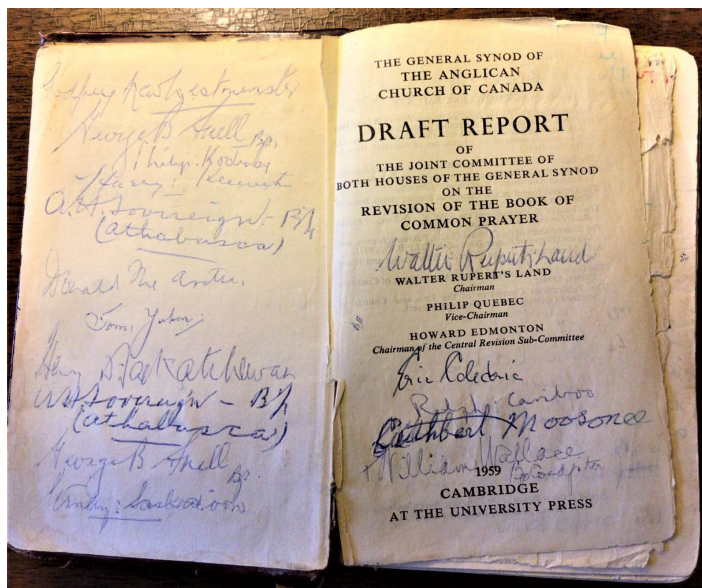 George B Snell Bp.
Philip
Harry:
A.H. Sovereign - Bp
(Athabasca)
Donald
Tom:
Henry D. Saskatchewan
A.H. Sovereign - Bp
(Athabasca)
George B Snell Bp
Saskatoon
THE GENERAL SYNOD OF
THE ANGLICAN
CHURCH OF CANADA
DRAFT REPORT
OF
THE JOINT COMMITTEE OF
BOTH HOUSES OF THE GENERAL SYNOD
ON THE
REVISION OF THE BOOK OF
COMMON PRAYER
Walter Rupert's Land
WALTER RUPERT'S LAND
Chairman
PHILIP QUEBEC
Vice-Chairman
HOWARD EDMONTON
Chairman of the Central Revision Sub-Committee
Eric Caledonia
Cariboo
Cuthbert Moosonee
+ William Wallace
1959
CAMBRIDGE
AT THE UNIVERSITY PRESS